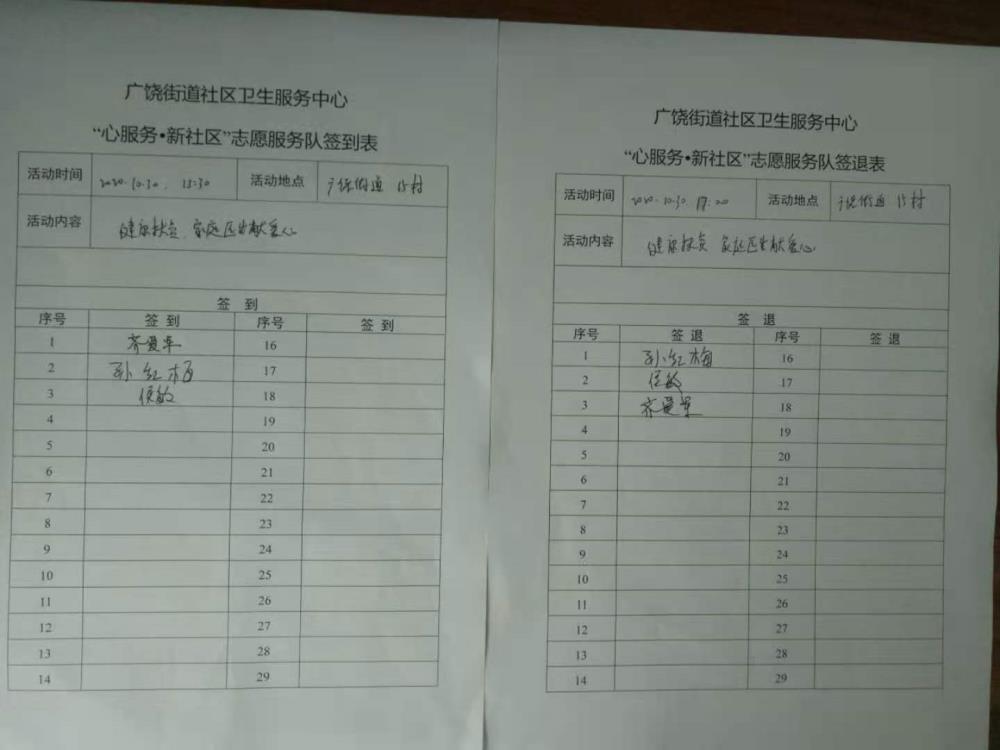 广饶街道社区卫生服务中心
“心服务•新社区”志愿服务队签到表
活动时间 2020.10.30. 13:30 活动地点 广饶街道 村
活动内容 健康扶贫 家庭医生献爱心
签 到
序号 签 到 序号 签 到
1 齐爱军 16
2 孙红梅 17
3 侯敏 18
4 19
5 20
6 21
7 22
8 23
9 24
10 25
11 26
12 27
13 28
14 29
广饶街道社区卫生服务中心
“心服务•新社区”志愿服务队签退表
活动时间 2020.10.30. 17:00 活动地点 广饶街道 村
活动内容 健康扶贫 家庭医生献爱心
签 退
序号 签 退 序号 签 退
1 孙红梅 16
2 侯敏 17
3 齐爱军 18
4 19
5 20
6 21
7 22
8 23
9 24
10 25
11 26
12 27
13 28
14 29